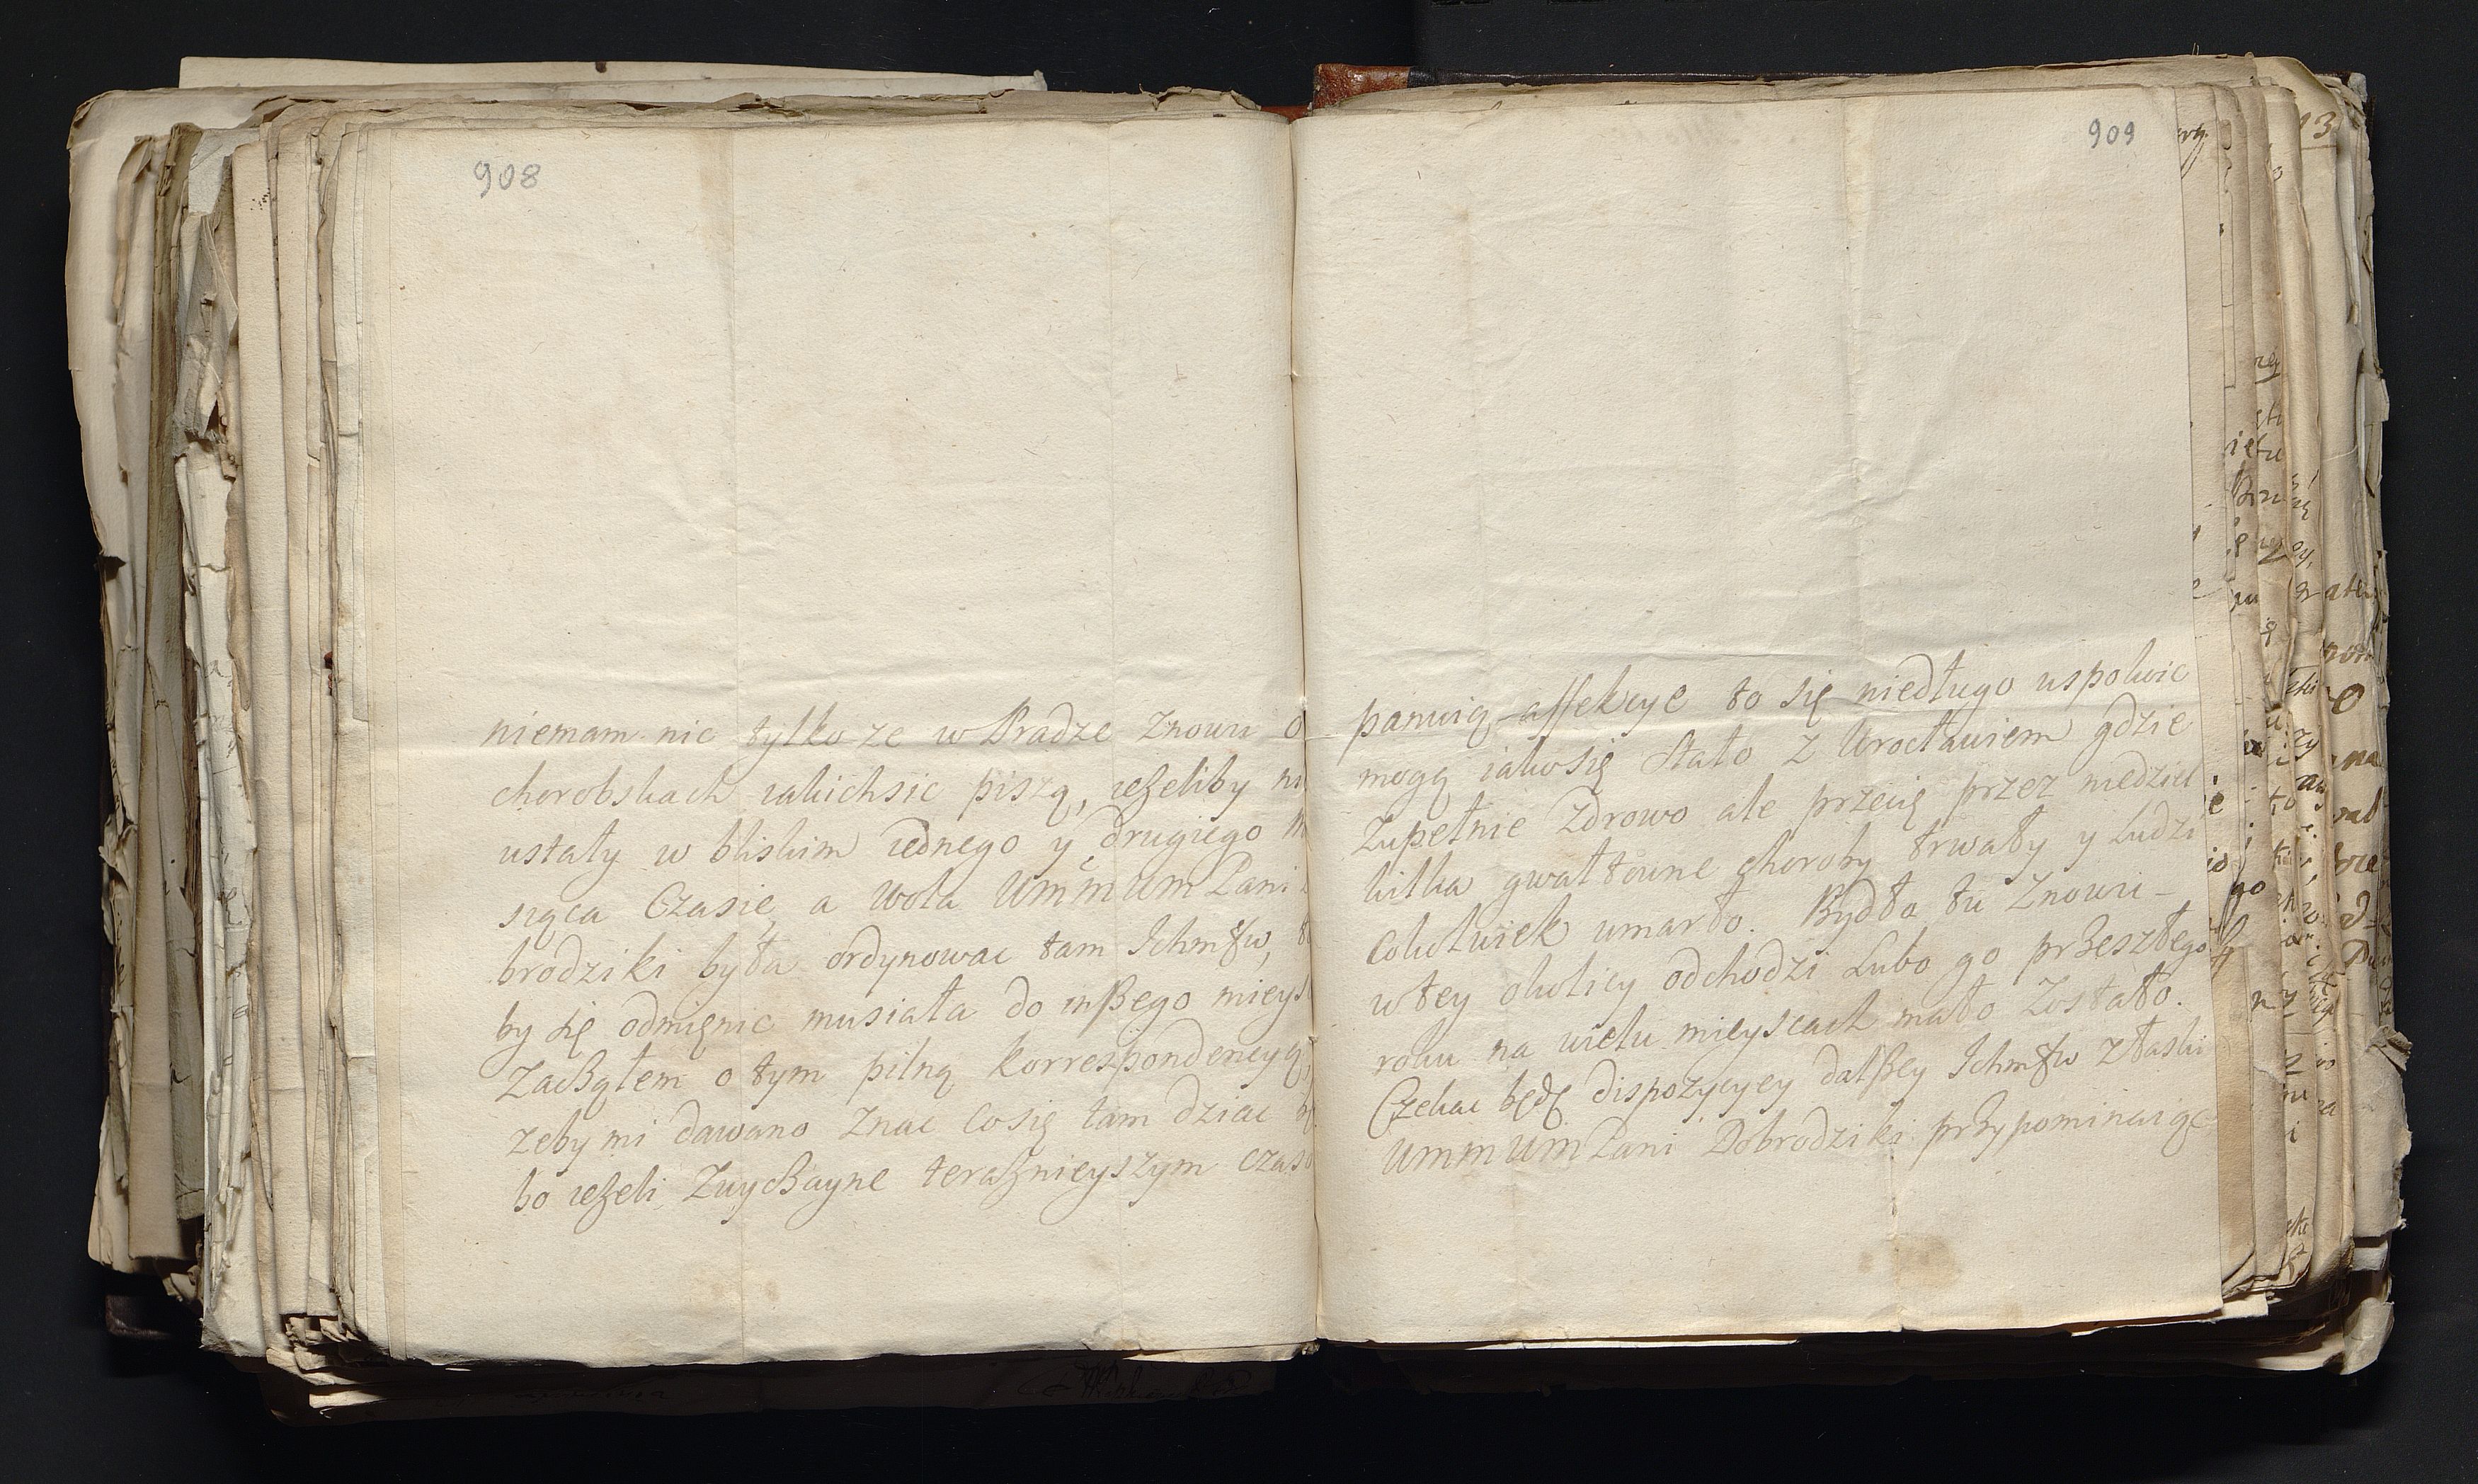 908
niemam nic tylko ze w Pradze Znowu o
chorobskach iakichsic piszą, ieżeliby
ustały w bliskim iednego y drugiego
siąca Czasie, a Wola UmmUmPani
brodziki była ordynowac tam Ichmśw,
by się odmięnic musiała do inßego mieys
Zacząłem o tym pilną korrespondencyą,
zeby mi dawano Znac Co się tam dziac
bo ieżeli Zwyczayne teraznieyszym czas
909
panuią affekcye to się niedługo uspokoic
mogą iako się Stało z Wrocławiem gdzie
Zupełnie Zdrowo ale przecię przez niedziel
kilka gwałtowne choroby trwały y Ludzi
Cokolwiek umarło. Bydło tu Znowu-
w tey okolicy odchodzi Lubo go przeszłego
roku na wielu mieyscach mało Zostało.
Czekac będę dispozycyey dalßey Ichmśw z łaski
UmmUmPani Dobrodziki przypominaiąc